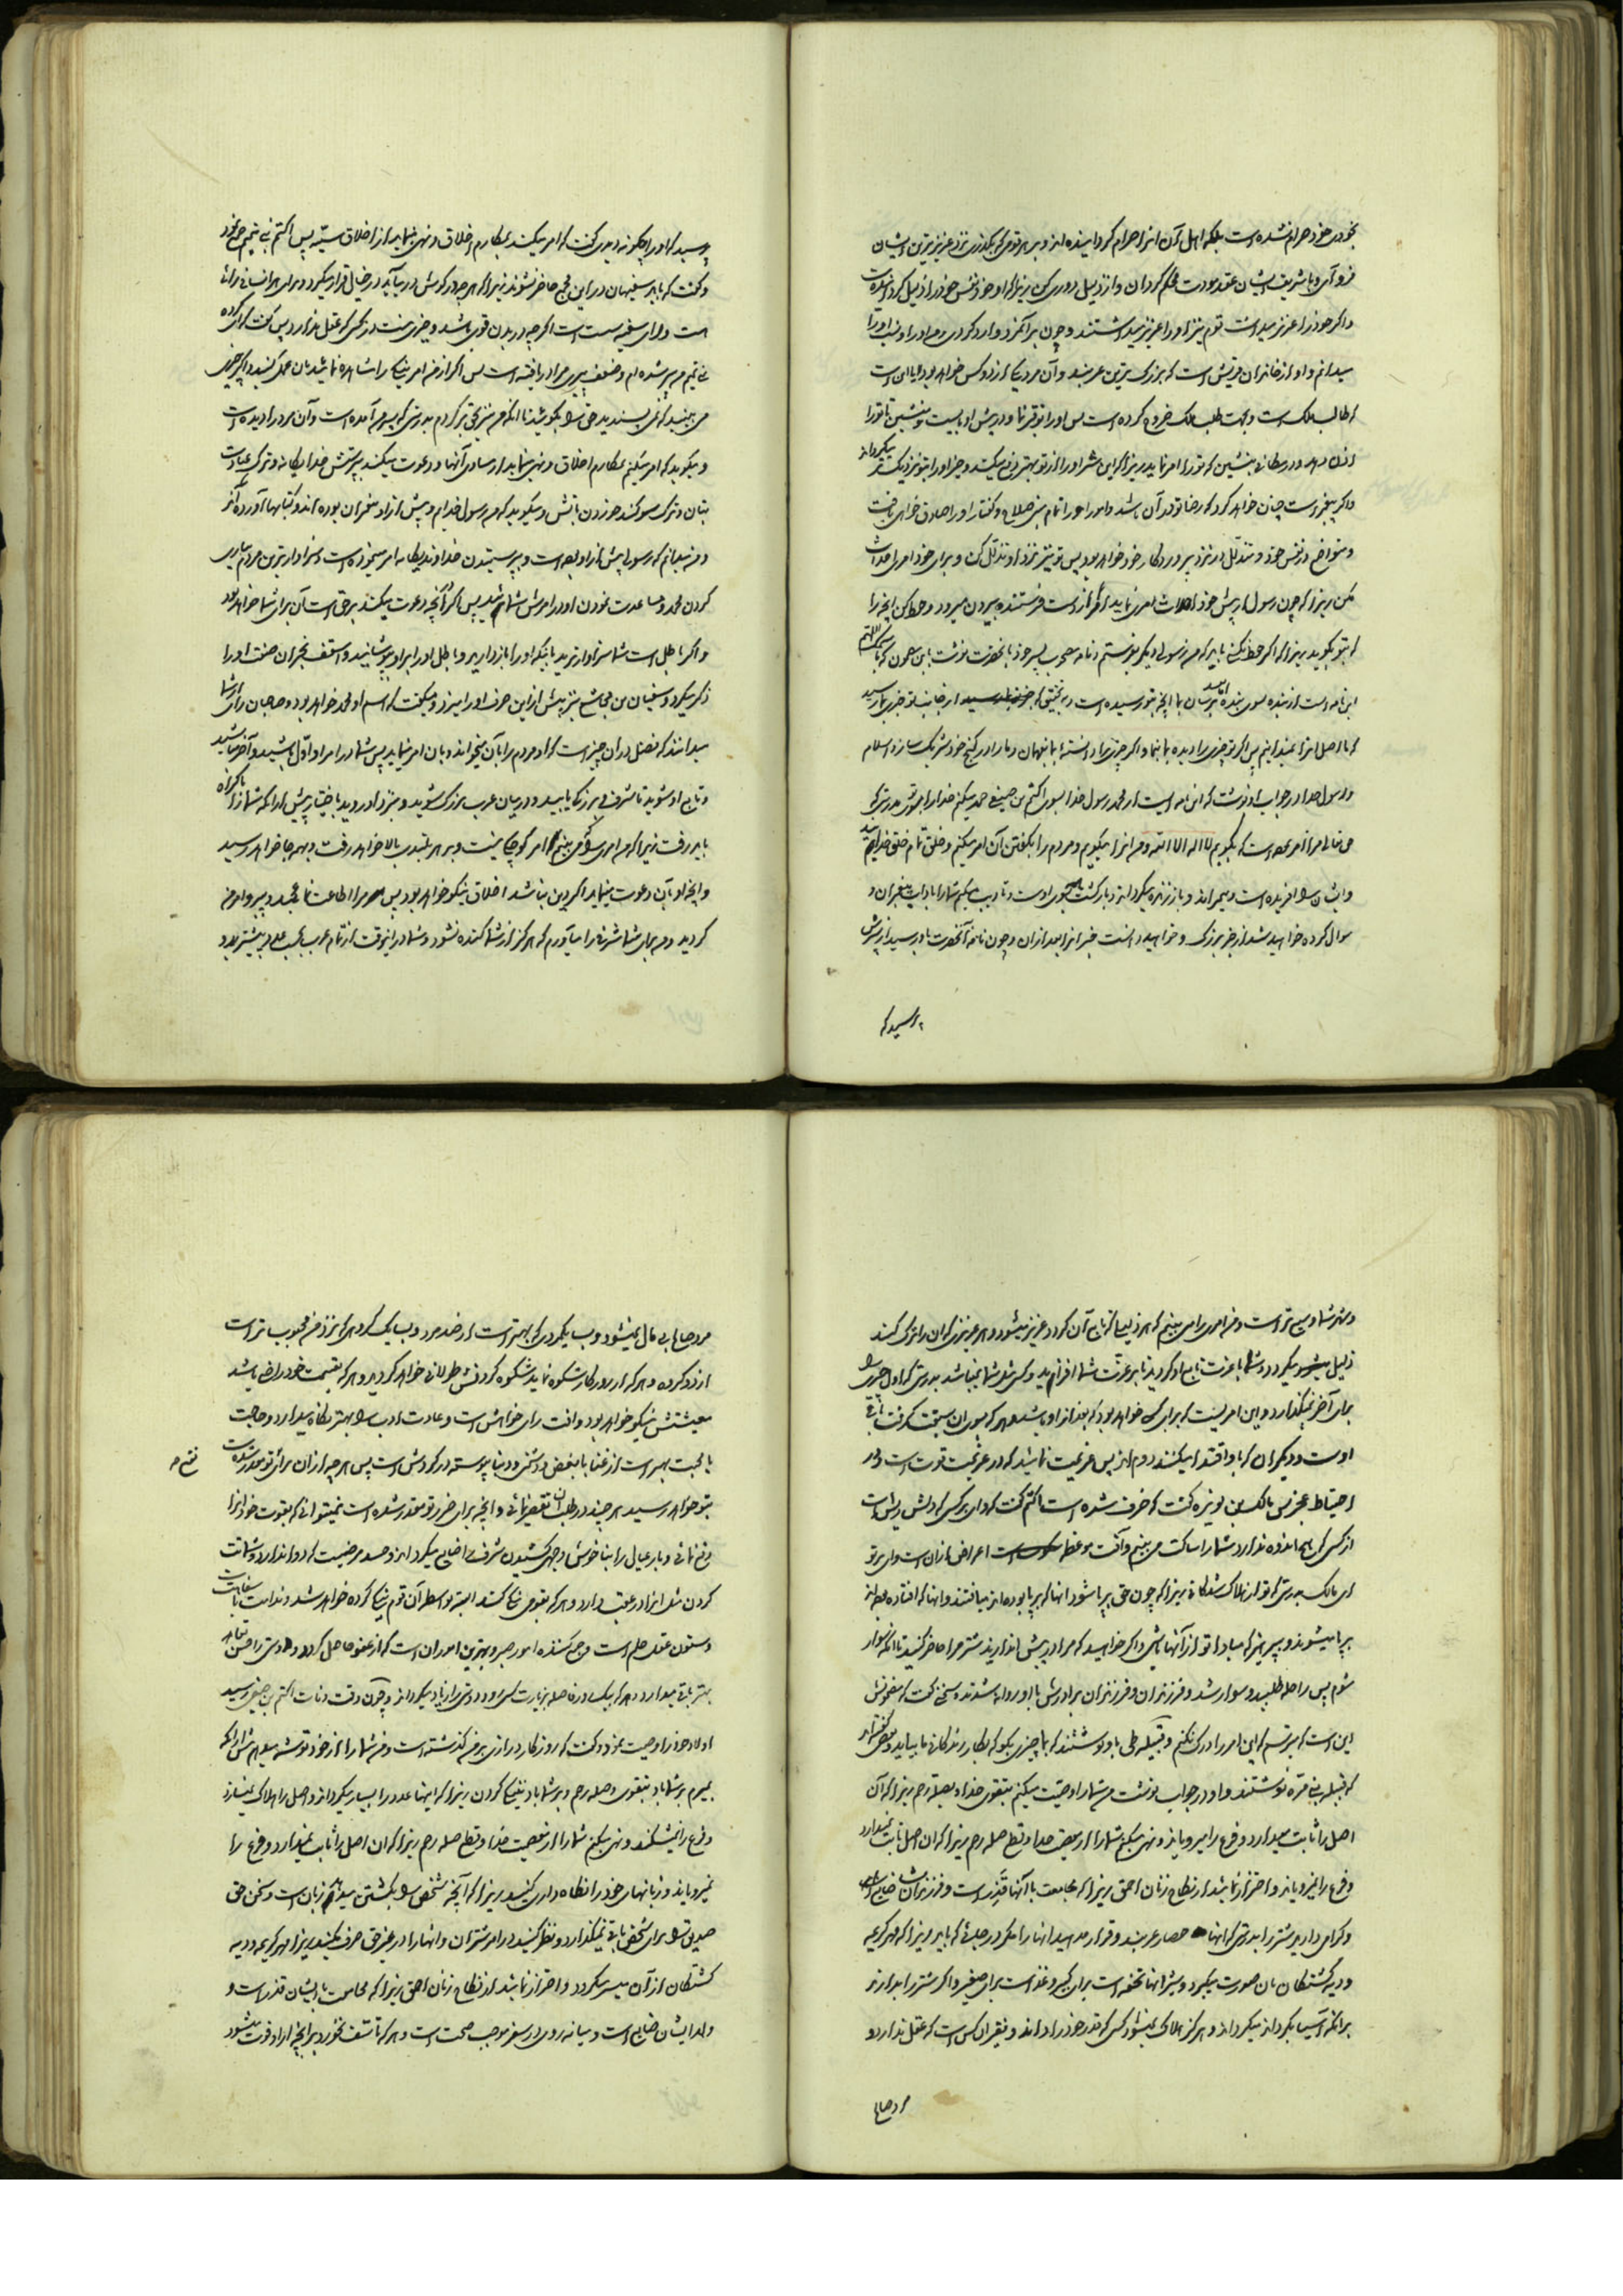 بخودی خود حرام نشده است بلکه اهل آن انرا حرام گردانیده اند و بهر قومی که بگذری نزد عزیزترین ایشان
فرو آی و با شریف ایشان عقد مودت محکم گردان و از ذلیل دوری کن زیرا که او خود نفس خود را ذلیل کرده است
و اگر خود را عزیز میداشت قوم نیز او را عزیز میداشتند و چون بر آنمرد وارد گردی من او را و نسب او را
میدانم و او از خاندان قریش است که بزرگ ترین عربند و آن مرد یکی از دو کس خواهد بود یا این است
که طالب ملک است و بجهت طلب ملک خروج کرده است پس او را توقیر نما و در پیش او بایست و منشین تا تو را
اذن دهد و در مکانی بنشین که تو را امر نماید زیرا که این شر او را از تو بهتر دفع میکند و خیر او را بتو نزدیکتر میگرداند
و اگر پیغمبر است چنان خواهد کرد که رضا تو در آن باشد و امور او را تمام مبنی صلاح و گفتار او را صادق خواهی یافت
و متواضع در نفس خود و متذلل در نزد پروردگار خود خواهد بود پس تو نیز نزد او تذلل کن و برای خود امری احداث
مکن زیرا که چون رسول از پیش خود احداث امری نماید از دست فرستنده بیرون میرود و حفظ کن انچه را
که بتو بگوید زیرا که اگر حفظ نکنی باید که من رسولی دیگر بفرستم و نامه مصحوب پسر خود بانحضرت نوشت باین مضمون که باسمک اللهم
این نامه ایست از بنده بسوی بنده اما بعد برسان بما انچه بتو رسیده است از جانب تو خبری بما رسید
که ما اصل انرا نمیدانیم پس اگر بتو چیزی را دیده بما بنما و اگر چیزی را دانسته بما بفهمان و ما را در گنج خود شریک ساز والسلام
و رسول خدا در جواب او نوشت که این نامه ایست از محمد رسول خدا بسوی اکثم بن صیفی حمد میکنم خدا را بسوی تو بدرستی که
حق تعالی مرا امر نموده است که بگویم لا اله الا الله و من انرا میگویم و مردم را بگفتن آن امر میکنم و خلق تمام خلق خدایند
و ایشان را آفریده است و میمیراند و باز زنده میگرداند و بازگشت همه بسوی اوست و تادیب میکنم شما را باداب پیغمبران و
سوال کرده خواهید شد از خبر بزرگ و خواهید دانست خبر انرا بعد از ان و چون نامه آنحضرت باو رسید از پسرش
پرسید که
پرسید که او را چگونه دیدی گفت که امر میکند بمکارم اخلاق و نهی مینماید از اخلاق سیئه پس اکثم بنی تمیم جمع نمود
و گفت که باید سفیهان در این مجمع حاضر نشوند زیرا که هر چه در گوش در بیاید در خیال قرار میگیرد و برای هر انسانی رائی
است و رای سفیه سست است اگر چه در بدن قوی باشد و خیری نیست در کسی که عقل ندارد پس گفت که ای گروه
بنی تمیم من پیر شده ام و ضعف پیری مرا دریافته است پس اگر از من امر نیکی را مشاهده نمائید بان عمل کنید و اگر چیزی
می بینید که نمی پسندید حق را بگوئید تا انکه من نیز بحق برگردم بدرستی که پسرم آمده است و آن مرد را دیده است
و میگوید که امر میکند بمکارم اخلاق و نهی مینماید از مساوی آنها و دعوت میکند بپرستش خدا یگانه و ترک عبادت
بتان و ترک سوگند خوردن باتش و میگوید که من رسول خدایم و پیش از او پیغمبران بوده اند و کتابها آورده اند
و من میدانم که رسولی پیش از او بوده است و بپرستیدن خداوند یگانه امر مینموده است و سزاوارترین مردم بیاری
کردن محمد و مساعدت نمودن او در امرش شمائید پس اگر آنچه دعوت میکند بر حق است آن برای شما خواهد بود
و اگر باطل است شما سزاوارترید باینکه او را باز دارید و باطل او را بر او بپوشانید و اسقف نجران صفت او را
ذکر میکرد و سفیان بن مجاشع نیز پیش از این حرف او را میزد و میگفت که اسم او محمد خواهد بود و صاحبان رای از شما
میدانند که فضل در ان چیز است که او مردم را بان میخواند و بان امر مینماید پس شما در امر او اول باشید و آخر نباشید
و تابع او شوید تا شرف و بزرگی یابید و در میان عرب بزرگ شوید و بنزد او روید باختیار پیش از انکه شما را باکراه
باید رفت زیرا که من امری را می بینم که امر کوچکی نیست و بر هر بلندی بالا خواهد رفت و بهمه جا خواهد رسید
و انچه او بان دعوت مینماید اگر دین نباشد اخلاق نیکو خواهد بود پس مرا اطاعت نمائید و پیرو امر من
گردید و من برای شما شرفی را میآورم که هرگز از شما کنده نشود و شما در اینوقت از تمام عرب بحسب عدد بیشترید و
و شهر شما وسیع تر است و من امری را می بینم که هر ذلیلی که تابع آن گردد عزیز میشود و هر عزیزی که ان را ترک کند
ذلیل میگردد و شما با عزت تابع او گردید تا بر عزت شما افزاید و کسی مثل شما نباشد بدرستی که اول چیزی را
برای آخر نمیگذارد و این امریست که برای کسی خواهد بود که بعد از او باشد و هر که بسوی ان سبقت گرفت باقی
اوست و دیگران که باو اقتدا میکنند دوم اند پس عزیمت نمائید که در عزیمت قوت است و در
احتیاط عجز پس مالک بن نویره گفت که خرف شده است اکثم گفت که وای بر کسی که دلش ریش است
از کسی که هیچ اندوه ندارد شما را ساکت می بینم و آفت موعظه اعراض از ان است وای بر تو
ای مالک بدرستی که تو از هلاک شدگانی زیرا که چون حق بر پا شود انها که بر پا بوده اند میافتند و انها که افتاده بوده اند
بر پا میشوند و بپرهیز که مبادا تو از آنها باشی و اگر خواهید که مرا در پیش اندازید شتر مرا حاضر کنید تا انکه سوار
شوم پس راحله طلبید و سوار شد و فرزندان و فرزندان برادرش با او روانه شدند و سخنی گفت که مضمونش
این است که میترسم که این امر را درک نکنم و قبیله طی باو نوشتند که بما چیزی بگو که بکار زندگانی ما بیاید و بعضی گفته اند
که قبیله بنی مرّه نوشتند و او در جواب نوشت من شما را وصیت میکنم بتقوی خدا و بصله رحم زیرا که آن
اصل را ثابت میدارد و فرع را میرویاند و نهی میکنم شما را از معصیت خدا و قطع صله رحم زیرا که ان اصل ثابت نمیدارد
و فرع را نمیرویاند و احتراز نمائید از نکاح زنان احمق زیرا که مجامعت با آنها قذر است و فرزندان شما ضایع میشوند
و گرامی دارید شتر را بدرستی که انها حصار عربند و قرار مدهید انها را مگر در جائی که باید زیرا که مهر کریمه
و دیه کشتگان بان صورت میگیرد و شیر انها تحفه است برای کبیر و غذاست برای صغیر و اگر شتر را بدارند
بر انکه آسیا بگرداند میگرداند و هرگز هلاک نمیشود کسی که قدر خود را داند و فقیر ان کس است که عقل ندارد و
مرد صالح
مرد صالح بی مال نمیشود و بسا یکمردی که بهتر است از صد مرد و بسا یک گروهی که نزد من محبوب تر است
از دو گروه و هر که از روزگار شکوه نماید شکوه کردنش طولانی خواهد گردید و هر که بقسمت خود راضی باشد
معیشتش نیکو خواهد بود و آفت رای خواهش است و عادت ادب را بهتر نگاه میدارد و حاجت
با محبت بهتر است از غنا با بغض و دشمنی و دنیا پیوسته در گردش است پس هر چه از ان برای تو مقدر شده است
بتو خواهد رسید هر چند در طلب ان تقصیر نمائی و انچه برای ضرر تو مقدر شده است نمیتوانی که بقوت خود انرا
دفع نمائی و بار عیال را بناخوش و جهل کشیدن شرف را ضایع میگرداند و حسد مرضیست که دوا ندارد و شماتت
کردن مثل انرا در عقب دارد و هر که بقومی نیکی کند البته بواسطه آن قوم نیکی کرده خواهد شد و ندامت با سفاهت
و ستون عقل حلم است و جمع کننده امور صبر و بهترین امور ان است که از عفو حاصل گردد و دوستی را حسن تعاهد
بهتر باقی میدارد و هر که بیک در فاصله زیارت کسی رود دوستی را زیاد میگرداند و چون وقت وفات اکثم بن صیفی رسید
اولاد خود را وصیت نمود و گفت که روزگار درازی بر من گذشته است و من شما را از خود توشه میدهم پیش از انکه
بمیرم بر شما باد بتقوی و صله رحم و بر شما باد بنیکی کردن زیرا که اینها عدد را بسیار میگرداند و اصل را هلاک نمیسازد
و فرع را نمیشکند و نهی میکنم شما را از معصیت خدا و قطع صله رحم زیرا که ان اصل را ثابت نمیدارد و فرع را
نمیرویاند و زبانهای خود را نگاه دارید زیرا که آنچه شخص را بکشتن میدهد زبان است و سخن حق
صدیق را برای شخص باقی نمیگذارد و نظر کنید در امر شتران و انها را در غیر حق صرف نکنید زیرا مهر کریمه و دیه
کشتگان از آن میسر میگردد و احتراز نمائید از نکاح زنان احمق زیرا که مجامعت با ایشان قذر است و
ولد ایشان ضایع است و میانه روی در سفر موجب صحت است و هر که تاسف نخورد بر انچه از او فوت میشود